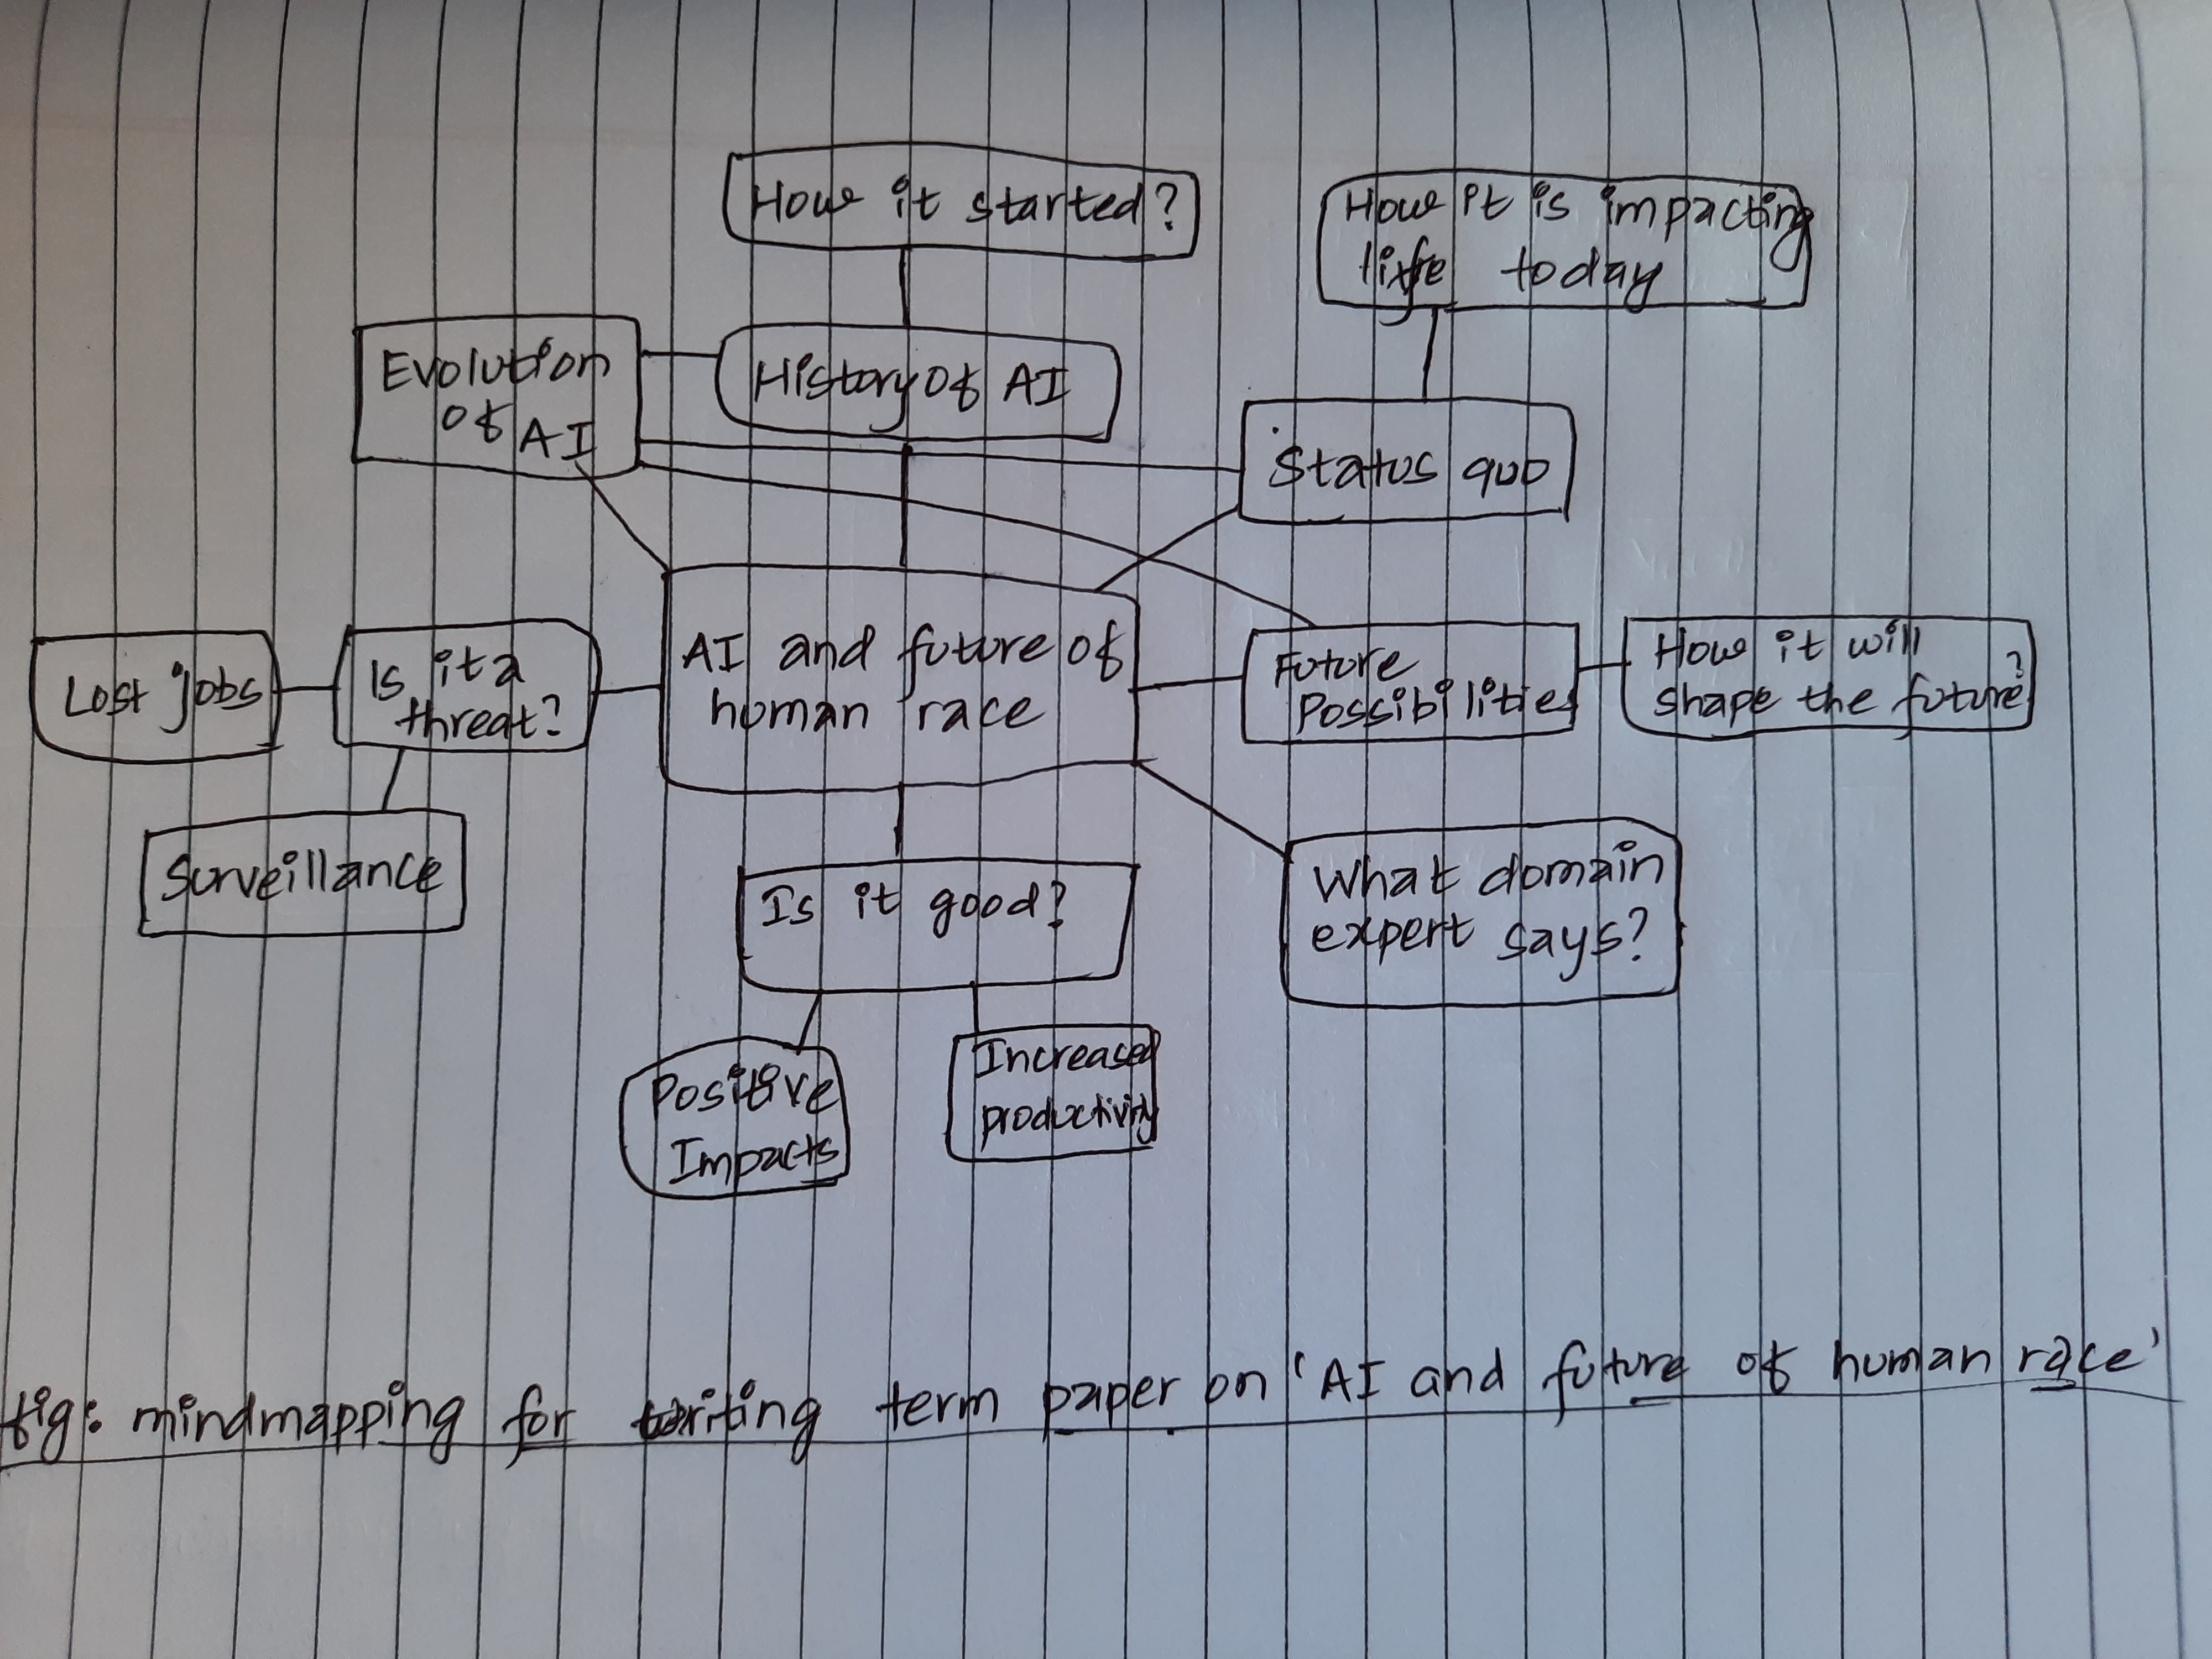 How it started?
How it is impacting
life today
Evolution
of AI
History of AI
Status quo
Lost jobs
Is it a
threat?
AI and future of
human race
Future
Possibilities
How it will
shape the future?
Surveillance
Is it good?
What domain
expert says?
Positive
Impacts
Increased
productivity
fig: mindmapping for writing term paper on 'AI and future of human race'